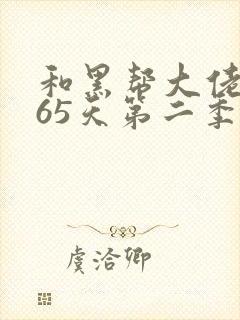 和黑帮大佬
65天第二季
虞洽卿